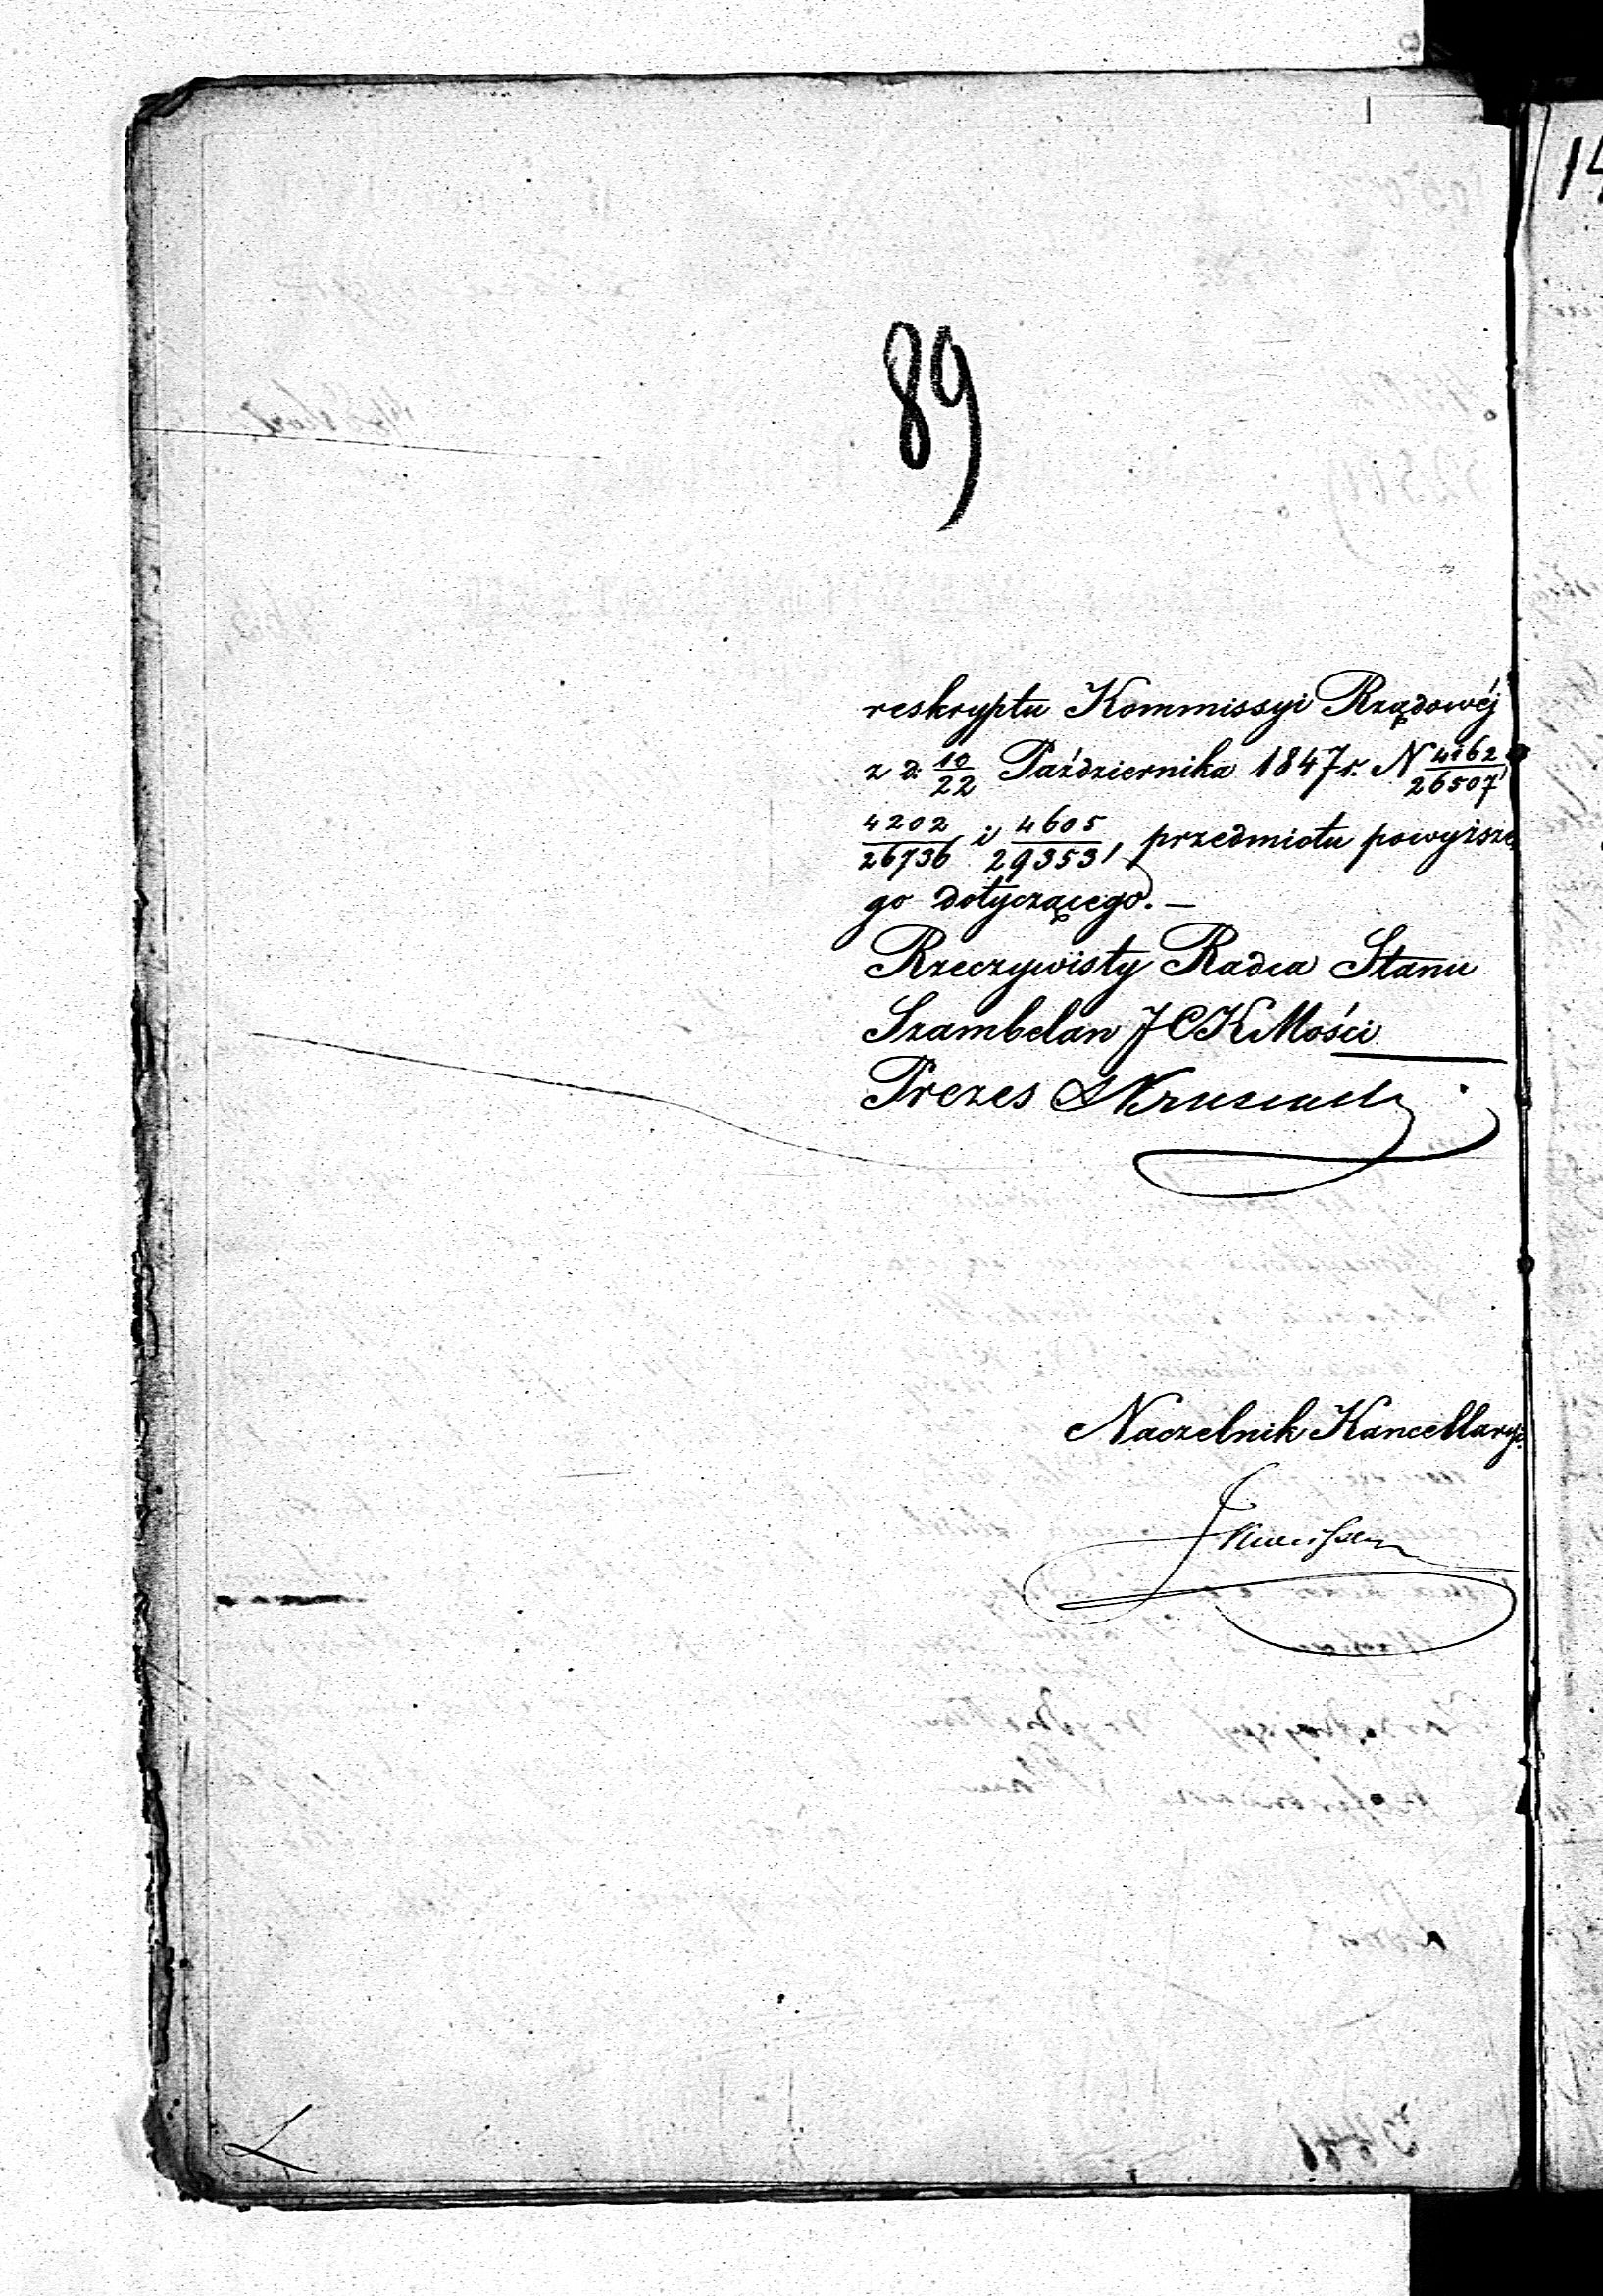 89
reskryptu Kommissyi Rządowéj
z d. 10/22 Października 1847 r. N 4162/26507,
4202/26736 i 4605/29353, przedmiotu powyższe
go dotyczącego. —
Rzeczywisty Radca Stanu
Szambelan JCKMości
Prezes
Naczelnik Kancellaryi